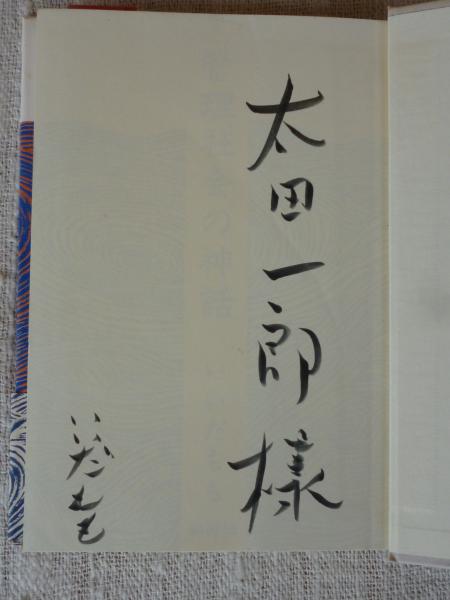 太田一郎様
いいだもも